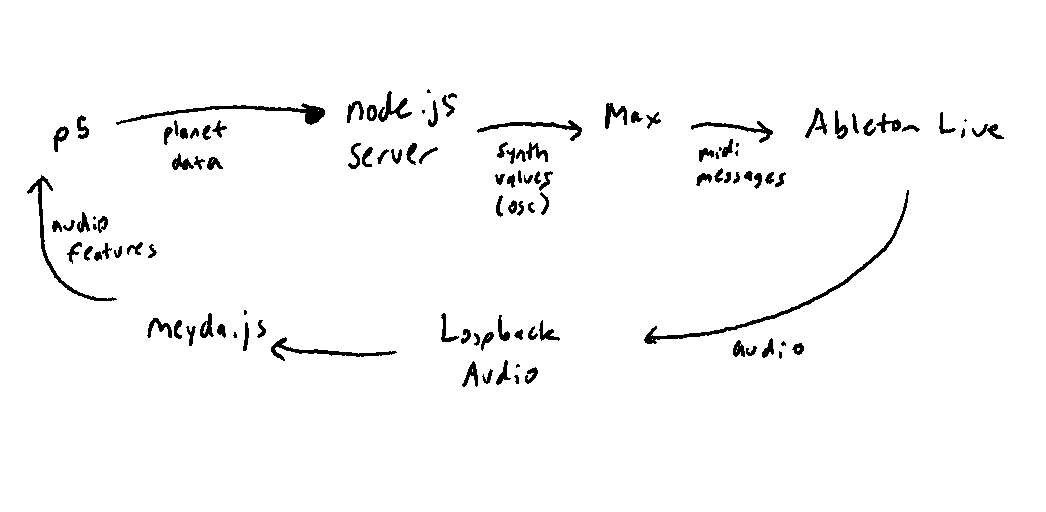 p5
planet
data
node.js
server
synth
values
(osc)
Max
midi
messages
Ableton Live
audio
Loopback
Audio
meyda.js
audio
features